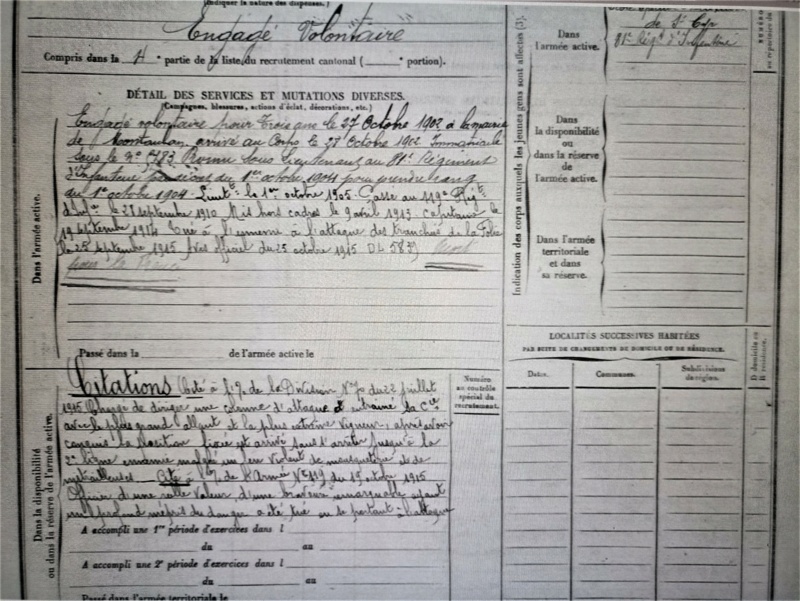 (Indiquer la nature des dispenses.)
Engagé Volontaire
Compris dans la 4e partie de la liste du recrutement cantonal ( e portion).
DÉTAIL DES SERVICES ET MUTATIONS DIVERSES.
(Campagnes, blessures, actions d'éclat, décorations, etc.)
Engagé volontaire pour trois ans le 27 Octobre 1902 à la mairie
de Montauban, arrivé au Corps le 28 Octobre 1902 Immatriculé
sous le No Promu sous Lieutenant au 81e Régiment
d'Infanterie du 1er octobre 1904 pour prendre rang
du 1er octobre 1904. Lieutt le 1er octobre 1905. Passé au 119e Régt
d'Infie le 27 septembre 1910 Mis hors cadres le 9 avril 1913. Capitaine le
19 septembre 1914 Tué à l'ennemi à l'attaque des tranchées de la Folie
le 25 septembre 1915 (Avis officiel du 25 octobre 1915 DL 583) Mort
pour la France
Passé dans la de l'armée active le
Citations Cité à l' de la Division No 70 du 22 juillet
1915 Chargé de diriger une colonne d'attaque a entraîné sa Cie
avec le plus grand allant et la plus extrême vigueur, après avoir
conquis la position fixée est arrivé sans s'arrêter jusqu'à la
2e ligne ennemie malgré un feu violent de mousqueterie et de
mitrailleuses. Cité à l' de l'Armée No 119 du 15 octobre 1915
Officier d'une valeur, d'une bravoure remarquable ayant
un profond mépris du danger a été tué en se portant à l'attaque
A accompli une 1re période d'exercices dans l
du au
A accompli une 2e période d'exercices dans l
du au
Passé dans l'armée territoriale le
Dans l'armée active.
Dans la disponibilité
ou dans la réserve de l'armée active.
Numéro
au contrôle
spécial du
recrutement.
Indication des corps auxquels les jeunes gens sont affectés (3).
Dans
l'armée active.
de St Cyr
81e Régt d'Infanterie
Dans la
disponibilité
ou dans
la réserve
de l'armée active.
Dans l'armée
territoriale
et dans
sa réserve.
LOCALITÉS SUCCESSIVES HABITÉES
PAR SUITE DE CHANGEMENTS DE DOMICILE OU DE RÉSIDENCE.
Dates.
Communes.
Subdivisions
de région.
D domicile ou
R résidence.